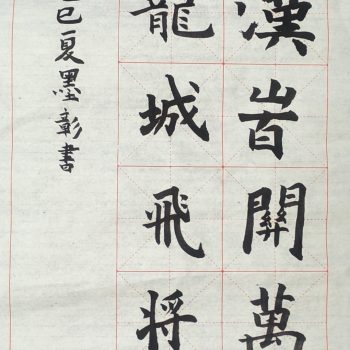 漢旹關萬
龍城飛將
巳夏墨彰書